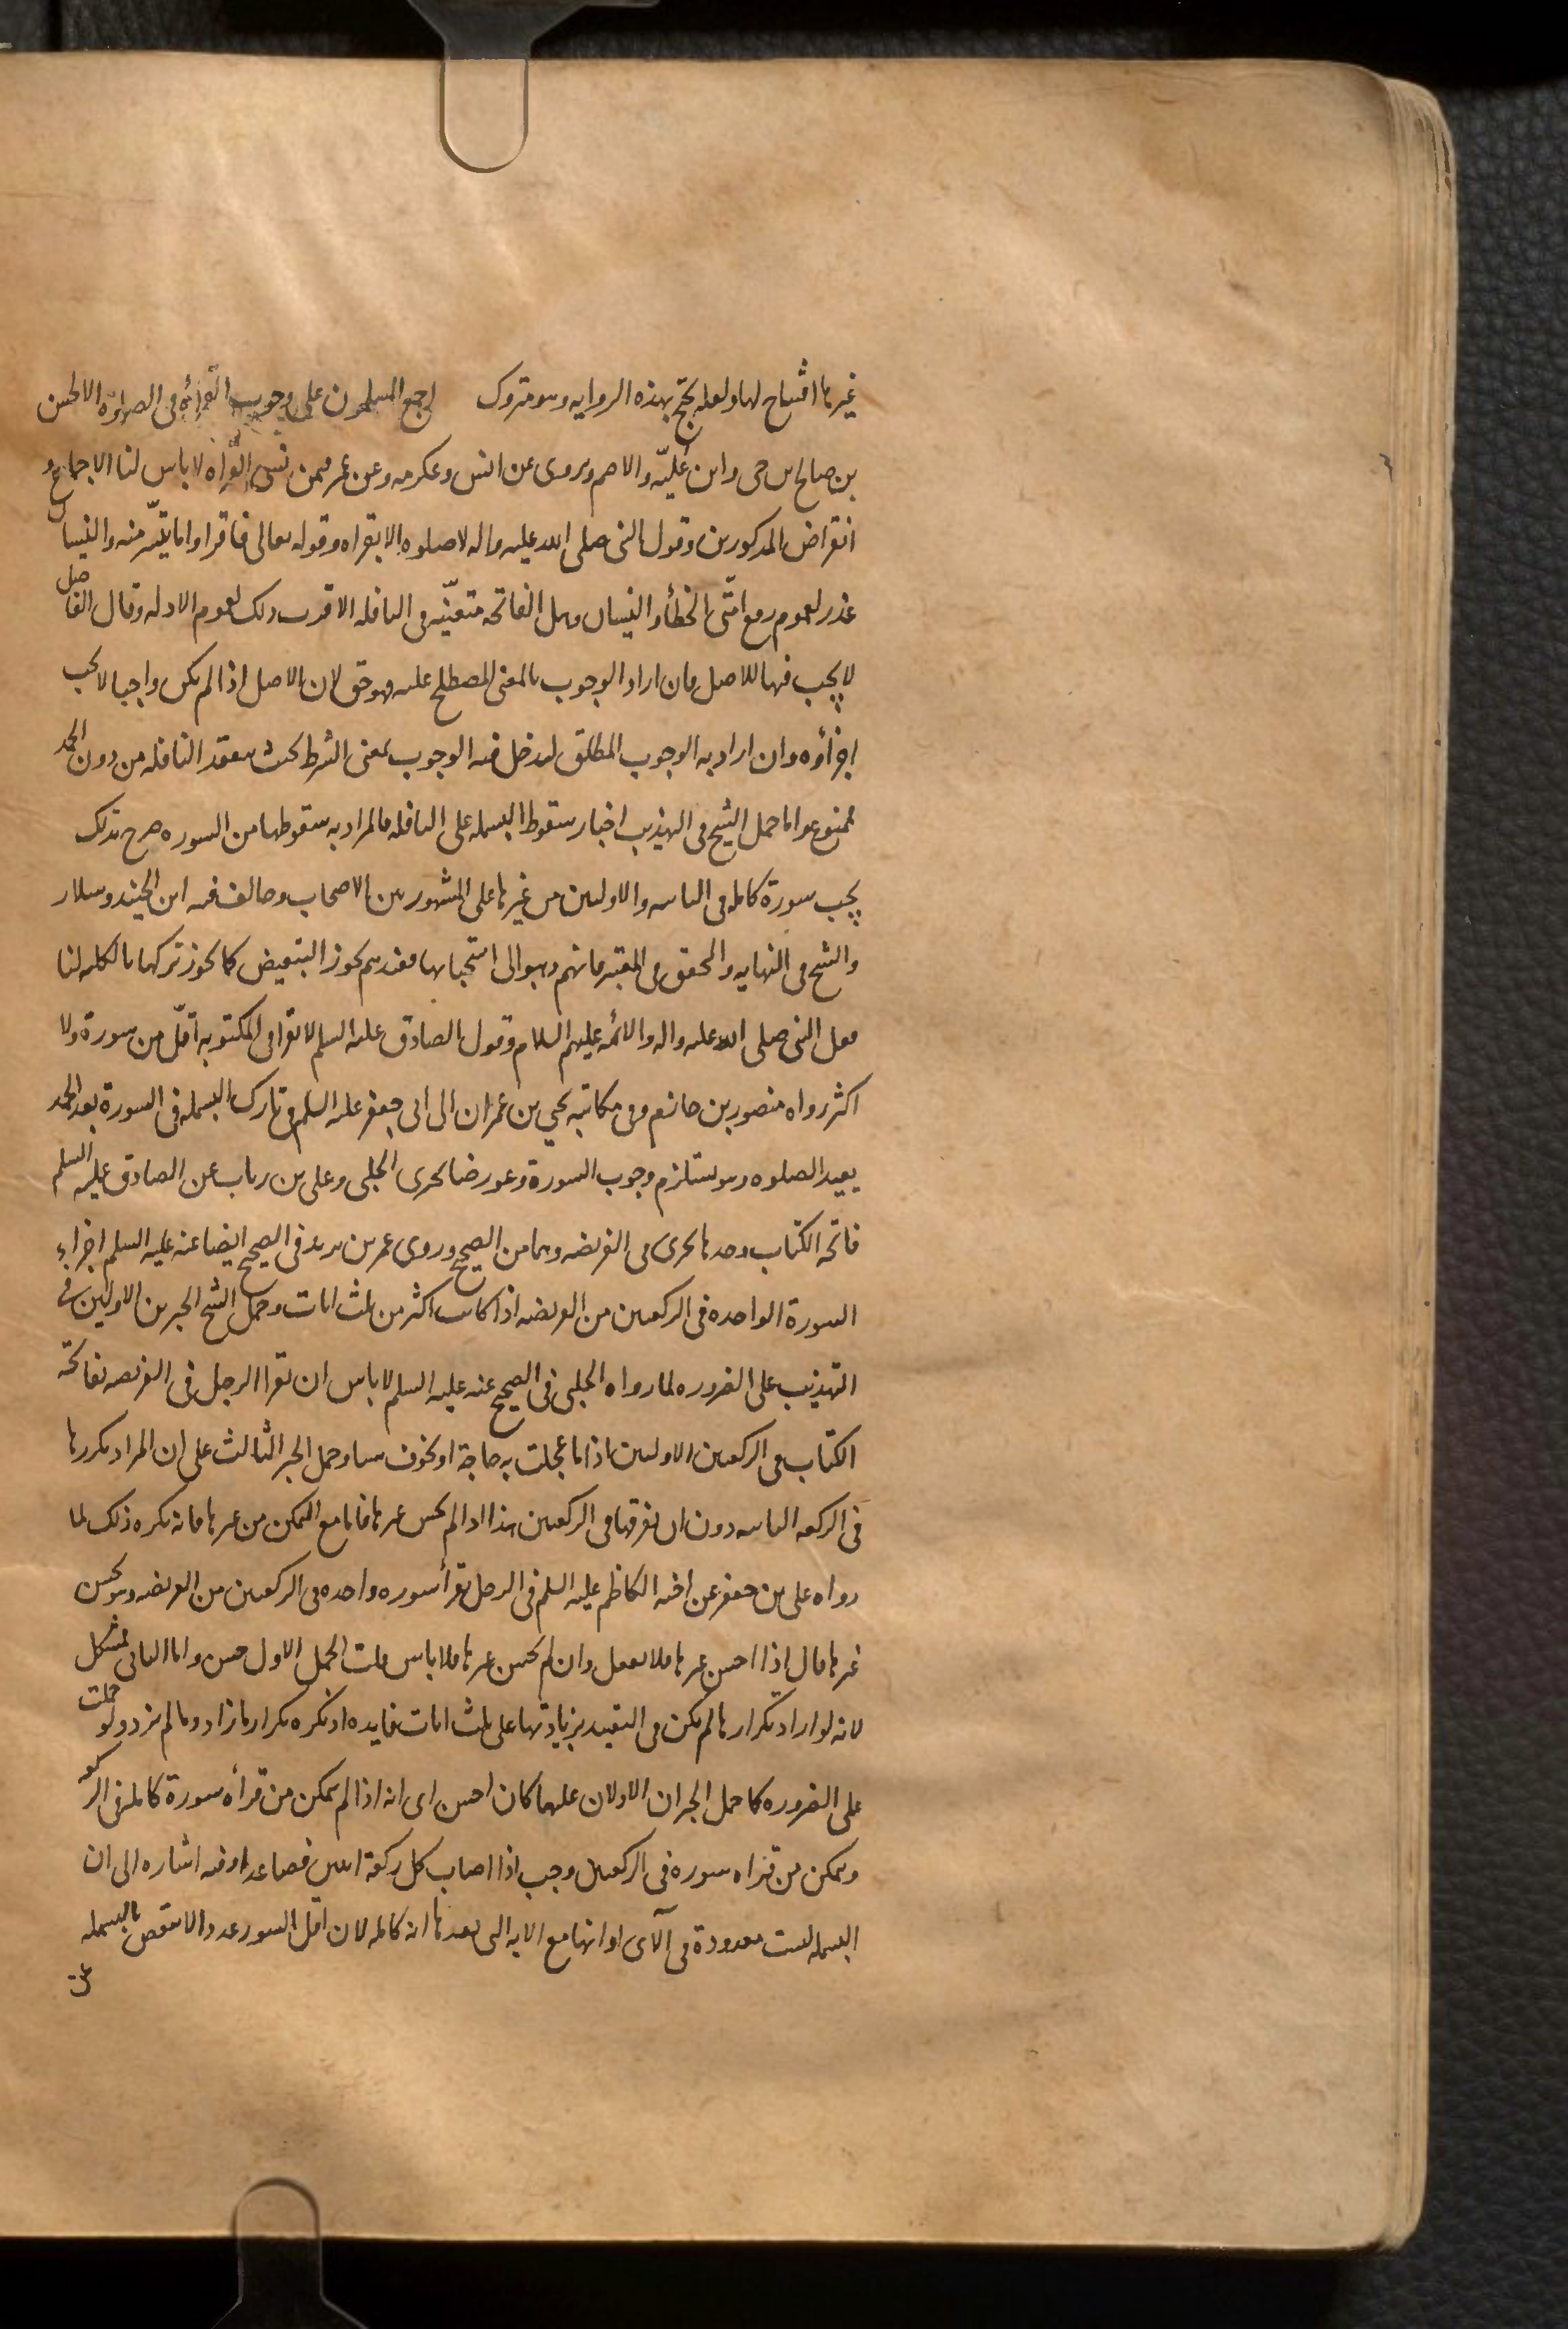 غيرها افتتاح لها ولعله يحتج بهذه الروايه وهو متروك اجمع المسلمون على وجوب القرأه فى الصلوة الا الحسن
بن صالح بن حى وابن عُليّه والاصم ويروى عن انس وعكرمه وعن عمر فيمن نسى القرأه لا باس لنا الاجماع و
انقراض المذكورين وقول النبى صلى الله عليه واله لا صلوه الا بقراه وقوله تعالى فاقراوا ما تيسّر منه والنسيان
عذر لعموم رفع امّتى الخطأ والنسيان وهل الفاتحه متعيّنه فى النافله الاقرب ذلك لعموم الادله وقال الفاضل
لا يجب فيها للاصل فان اراد الوجوب بالمعنى المصطلح عليه فهو حق لان الاصل اذا لم يكن واجبا لا يجب
اجزأوه وان اراد به الوجوب المطلق ليدخل فيه الوجوب بمعنى الشرط بحيث تنعقد النافله من دون الحمد
فممنوع واما حمل الشيخ فى التهذيب اخبار سقوط البسمله على النافله فالمراد به سقوطها من السوره صرح بذلك
يجب سورة كامله فى الثنائيه والاوليين من غيرها على المشهور بين الاصحاب وخالف فيه ابن الجنيد وسلار
والشيخ فى النهايه والمحقق فى المعتبر فانهم ذهبوا الى استحبابها فعندهم يجوز التبعيض كما يجوز تركها بالكليه لنا
فعل النبى صلى الله عليه واله والائمه عليهم السلام وقول الصادق عليه السلم لا تقرا فى المكتوبه اقلّ من سورة ولا
اكثر رواه منصور بن حازم وفى مكاتبه يحيى بن عمران الى ابى جعفر عليه السلم فى تارك البسمله فى السورة بعد الحمد
يعيد الصلوه وهو يستلزم وجوب السورة وعورض بما تحرى الحلبى وعلى بن رياب عن الصادق عليه السلم
فاتحه الكتاب وحدها تجزى فى الفريضه وهما من الصحيح وروى عمر بن يزيد فى الصحيح ايضا عنه عليه السلم اجزاء
السورة الواحده فى الركعتين من الفريضه اذا كانت اكثر من ثلث ايات وحمل الشيخ الخبرين الاولين فى
التهذيب على الضروره لما رواه الحلبى فى الصحيح عنه عليه السلم لا باس ان يقرا الرجل فى الفريضه بفاتحة
الكتاب فى الركعتين الاوليين اذا ما عجلت به حاجة او تخوف شيئا وحمل الخبر الثالث على ان المراد تكررها
فى الركعه الثانيه دون ان يفرقها فى الركعتين هذا اذا لم يحسن غيرها فاما مع التمكن من غيرها فانه يكره ذلك لما
رواه على بن جعفر عن اخيه الكاظم عليه السلم فى الرجل يقرأ سوره واحده فى الركعتين من الفريضه وهو يحسن
غيرها قال اذا احسن غيرها فلا يفعل وان لم يحسن غيرها فلا باس قلت الحمل الاول حسن واما الثانى فمشكل
لانه لو اراد تكرارها لم يكن فى التقييد بزيادتها على ثلث ايات فايده اذ يكره تكرار ما زاد وما لم يزد ولو حملت
على الضروره كما حمل الخبران الاولان عليها كان احسن اى انه اذا لم يتمكن من قرأه سورة كامله فى الركعه
ويمكن من قراه سوره فى الركعتين وجب اذا اصاب كل ركعة ايتين فصاعدا وفيه اشاره الى ان
البسمله ليست معدودة فى الآى او انها مع الايه التى بعدها ايه كامله لان اقل السور عدد الا تنقص بالبسمله